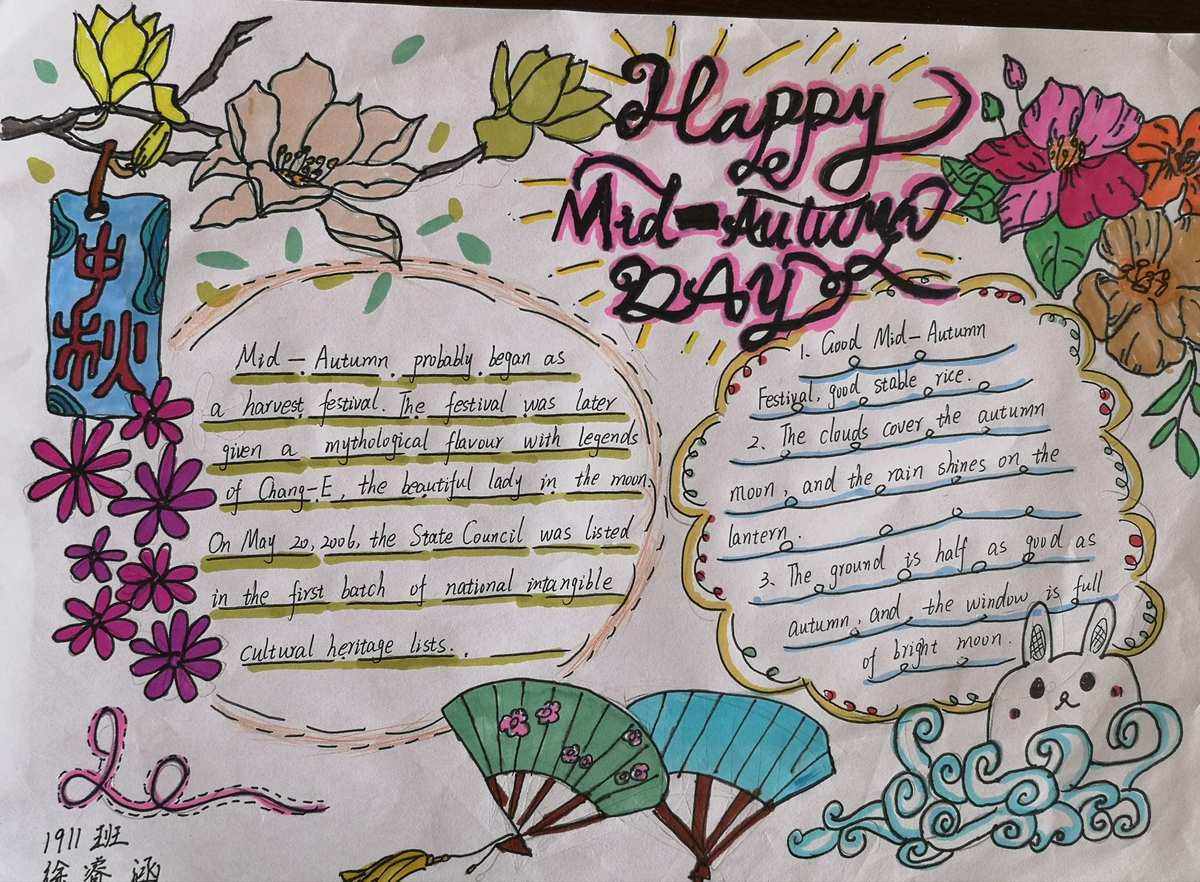 Happy
Mid-Autumn
DAY
中秋
Mid-Autumn probably began as
a harvest festival. The festival was later
given a mythological flavour with legends
of Chang-E, the beautiful lady in the moon.
On May 20, 2006, the State Council was listed
in the first batch of national intangible
cultural heritage lists.
1. Good Mid-Autumn
Festival, good stable rice.
2. The clouds cover the autumn
moon, and the rain shines on the
lantern.
3. The ground is half as good as
autumn, and the window is full
of bright moon.
1911班
徐睿涵